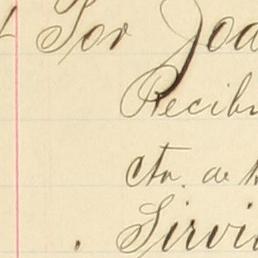 Por Joa
Recib
cta. de
Sirvi